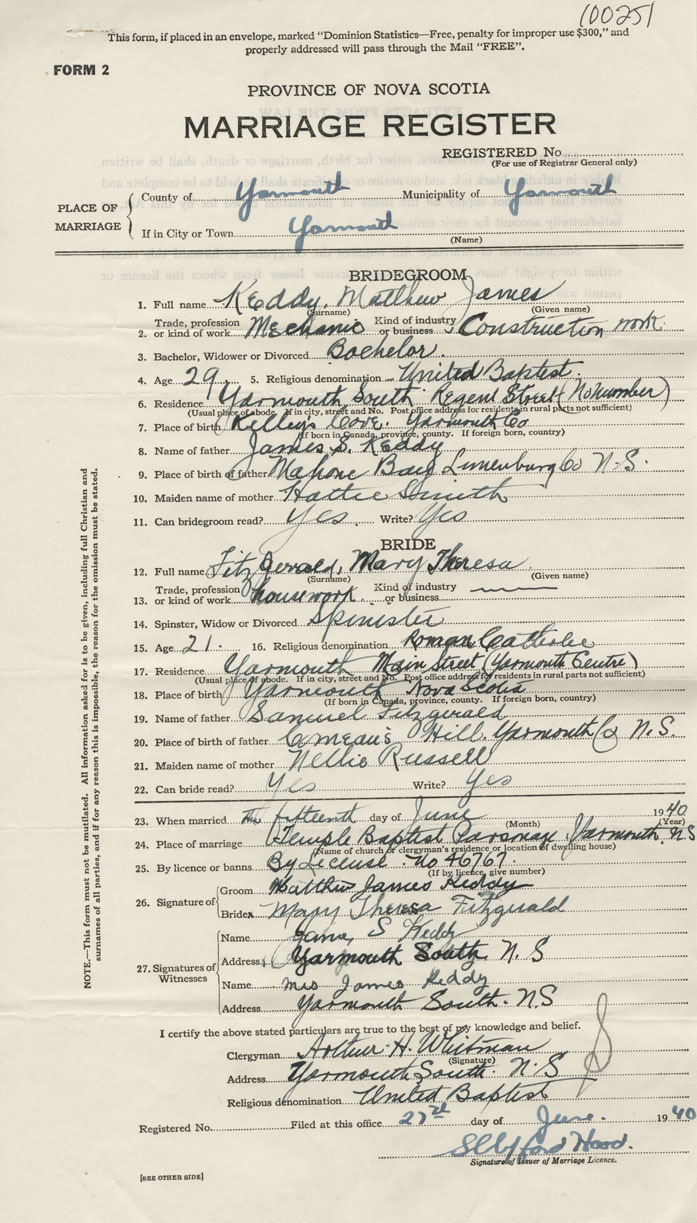 100251
This form, if placed in an envelope, marked "Dominion Statistics—Free, penalty for improper use $300," and
properly addressed will pass through the Mail "FREE".
FORM 2
PROVINCE OF NOVA SCOTIA
MARRIAGE REGISTER
REGISTERED No.
(For use of Registrar General only)
PLACE OF MARRIAGE
County of Yarmouth Municipality of Yarmouth
If in City or Town Yarmouth
(Name)
BRIDEGROOM
1. Full name Keddy, Matthew James
(Surname) (Given name)
2. Trade, profession or kind of work Mechanic Kind of industry or business Construction work
3. Bachelor, Widower or Divorced Bachelor.
4. Age 29 5. Religious denomination United Baptist.
6. Residence Yarmouth South Regent Street (No Number)
(Usual place of abode. If in city, street and No. Post office address for residents in rural parts not sufficient)
7. Place of birth Kelley's Cove. Yarmouth Co
(If born in Canada, province, county. If foreign born, country)
8. Name of father James S. Keddy
9. Place of birth of father Mahone Bay Lunenburg Co N.S.
10. Maiden name of mother Hattie Smith
11. Can bridegroom read? Yes Write? Yes
BRIDE
12. Full name Fitzgerald, Mary Theresa
(Surname) (Given name)
13. Trade, profession or kind of work housework Kind of industry or business
14. Spinster, Widow or Divorced Spinister
15. Age 21. 16. Religious denomination Roman Catholic
17. Residence Yarmouth Main Street (Yarmouth Centre)
(Usual place of abode. If in city, street and No. Post office address for residents in rural parts not sufficient)
18. Place of birth Yarmouth Nova Scotia
(If born in Canada, province, county. If foreign born, country)
19. Name of father Samuel Fitzgerald
20. Place of birth of father Comeau's Hill. Yarmouth Co N.S.
21. Maiden name of mother Nellie Russell
22. Can bride read? Yes Write? Yes
23. When married The fifteenth day of June 1940
(Month) (Year)
24. Place of marriage Temple Baptist Parsonage Yarmouth, NS
(Name of church or clergyman's residence or location of dwelling house)
25. By licence or banns By License No 46767.
(If by licence, give number)
26. Signature of
Groom Matthew James Keddy
Bride x Mary Theresa Fitzgerald
27. Signatures of Witnesses
Name James S Keddy
Address Yarmouth South. N.S
Name Mrs James Keddy
Address Yarmouth South. NS
I certify the above stated particulars are true to the best of my knowledge and belief.
Clergyman Arthur H. Whitman
(Signature)
Address Yarmouth South. N.S
Religious denomination United Baptist
Registered No. Filed at this office day of June. 1940
Signature of Issuer of Marriage Licence.
[SEE OTHER SIDE]
NOTE.—This form must not be mutilated. All information asked for is to be given, including full Christian and
surnames of all parties, and if for any reason this is impossible, the reason for the omission must be stated.